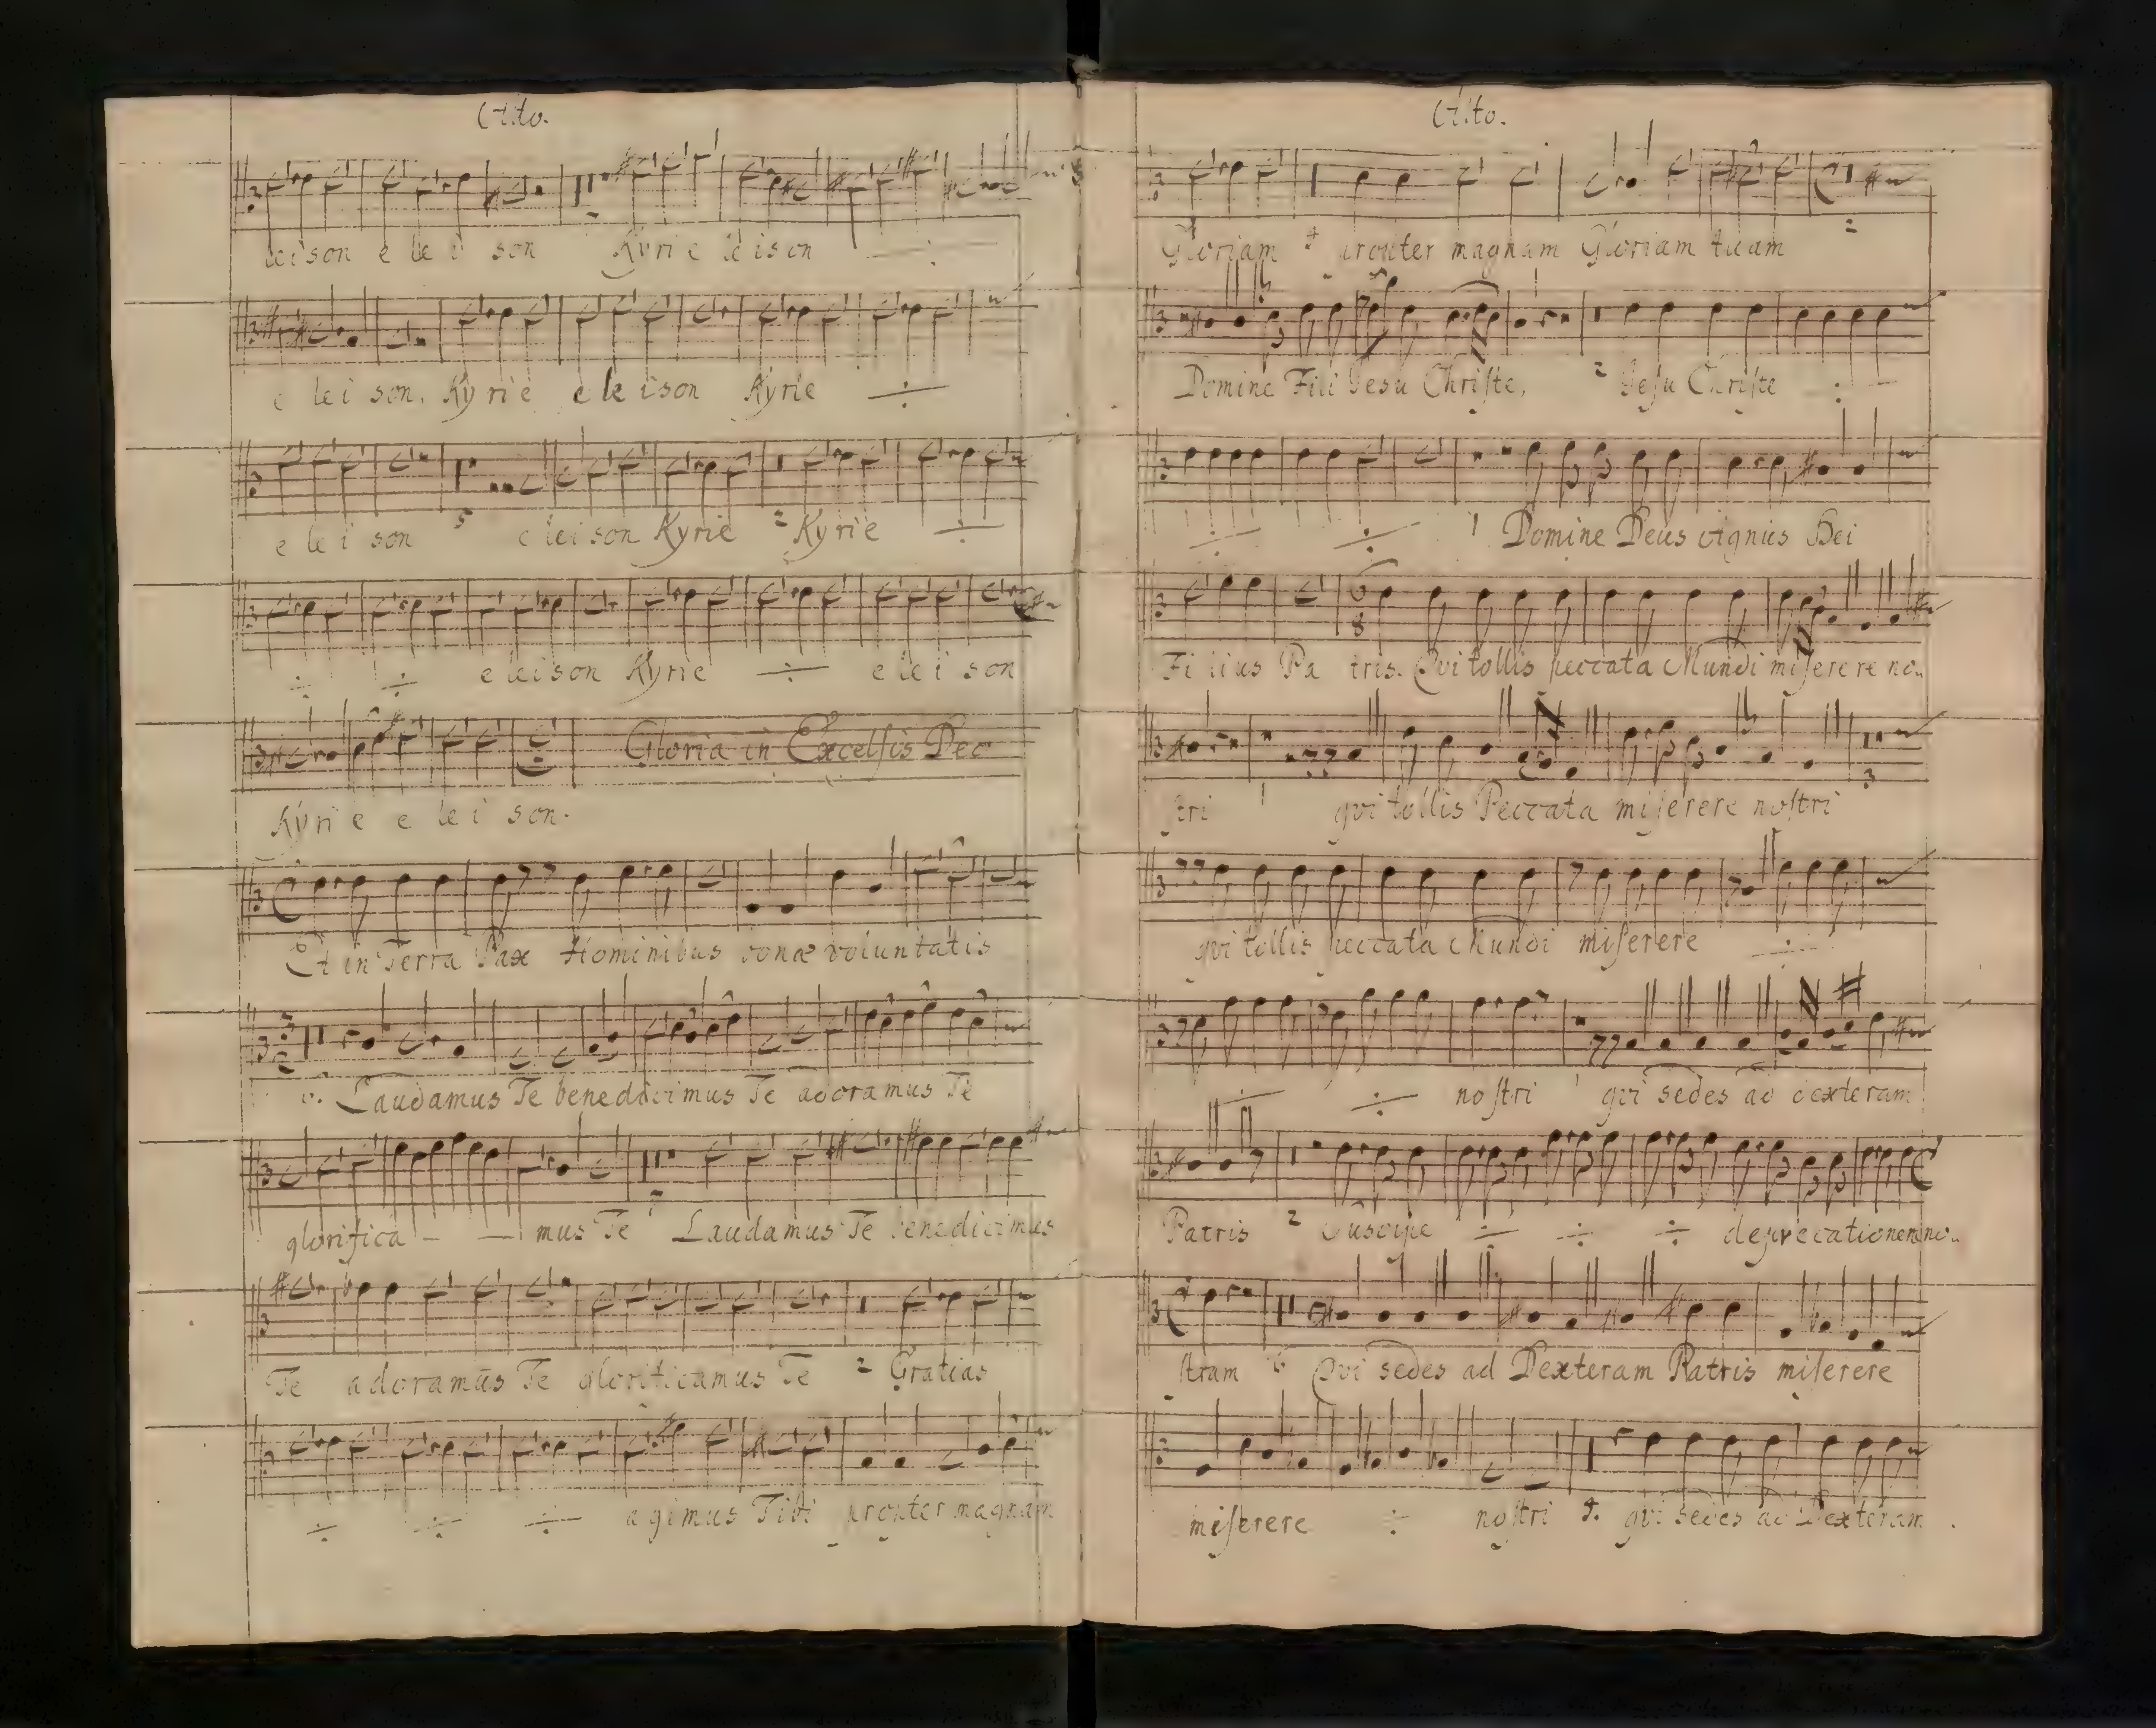 Alto.
leison e le i son Kyri e le ison ÷
e le i son. Ky rie e le ison Kyrie ÷
e le i son 5 e leison Kyrie 2 Kyrie ÷
÷ ÷ e leison Kyrie ÷ e le i son
Gloria in Excelsis Deo
Kyri e e le i son.
Et in Terra Pax Hominibus bonæ voluntatis
Laudamus Te benedicimus Te adoramus Te
glorifica - - mus Te 7 Laudamus Te benedicimus
Te adoramus Te glorificamus Te 2 Gratias
÷ ÷ ÷ agimus Tibi propter magnam
Alto.
Gloriam 4 propter magnam Gloriam tuam 2
Domine Fili Jesu Chriſte, 2 Jeſu Chriſte ÷
÷ ÷ 1 Domine Deus Agnus Dei
Fi lius Pa tris. Qvi tollis peccata Mundi miſerere no..
ſtri 1 qvi tollis Peccata miſerere noſtri
qvi tollis peccata Mundi miſerere ÷
÷ ÷ noſtri 1 qvi sedes ad dexteram
Patris 2 Suscipe ÷ ÷ ÷ deprecationem no..
ſtram 6 Qvi sedes ad Dexteram Patris miſerere
miſerere ÷ noſtri 4. qvi sedes ad Dexteram